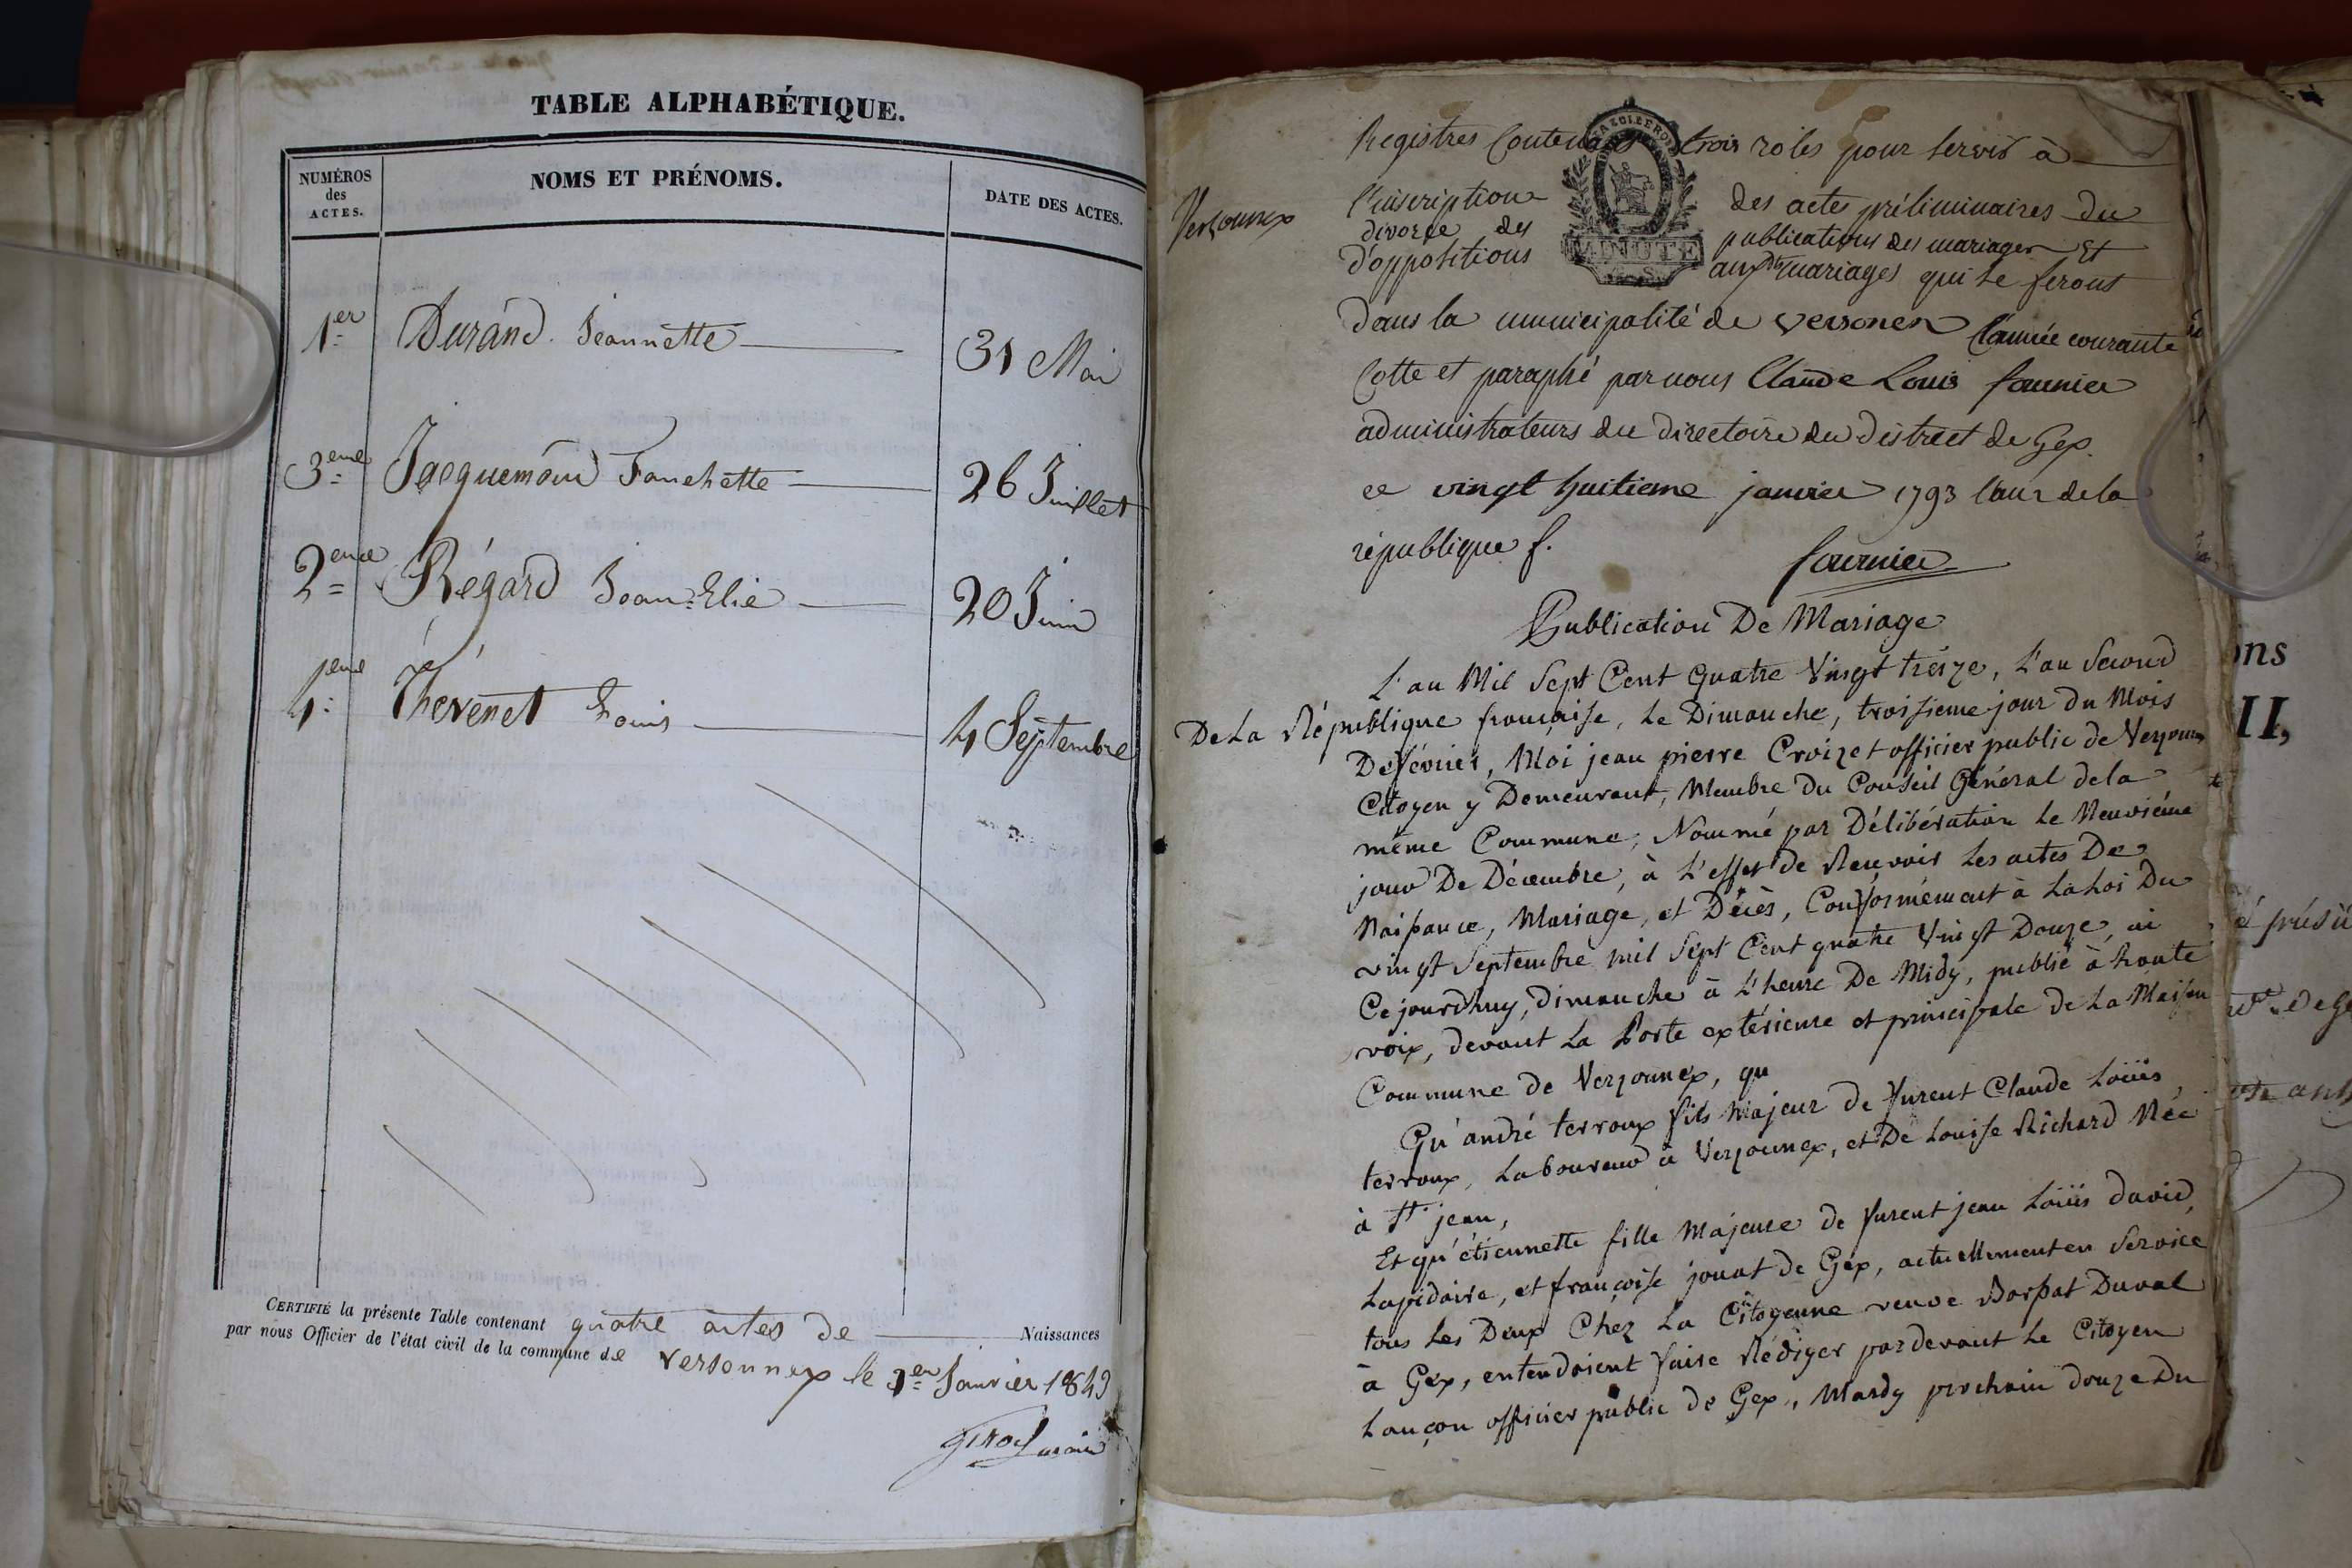 TABLE ALPHABÉTIQUE.
NUMÉROS des ACTES.
NOMS ET PRÉNOMS.
DATE DES ACTES.
1er Durand Jeannette 31 Mai
3eme Jacquemoud Fanchette 26 Juillet
2eme Régard Jean-Elie 20 Juin
4eme Thévenet Louis 4 Septembre
CERTIFIÉ la présente Table contenant quatre actes de Naissances
par nous Officier de l'état civil de la commune de Versonnex le 1er Janvier 1849
maire
Registres Contenant trois roles pour servir à
Verzonnex
l'inscription des actes préliminaires du
divorce des publications des mariages Et
d'oppositions auxdts mariages qui se feront
MINUTE
dans la municipalité de versonex l'année courante
Cotte et paraphé par nous Claude Louis fournier
administrateurs du directoire du district de Gex.
ce vingt huitieme janvier 1793 l'an 2 de la
république f.
fournier
Publication De Mariage
L'an Mil Sept Cent Quatre Vingt treize, L'an Second
De La République française, Le Dimanche, troisieme jour du Mois
De février, Moi jean pierre Croizet officier public de Verzonnex
Citoyen y Demeurant, Membre Du Conseil Général de la
même Commune, Nommé par Délibération Le Neuvième
jour De Décembre, à L'effet de Recevoir Les actes De
Naissance, Mariage, et Décès, Conformément à La Loi Du
vingt Septembre mil Sept Cent quatre Vingt Douze, ai
Cejourdhuy, Dimanche à L'heure De Midy, publié à haute
voix, devant La Porte extérieure et principale de La Maison
Commune de Verzonnex, qu
Qu'andré terroux fils Majeur de furent Claude Loüis
terroux, Laboureur à Verzonnex, et De Louise Richard Née
à St jean,
Et qu'étiennette fille Majeure de furent jean Loüis david,
Lapidaire, et françoise jouat de Gex, actuellement en Service
tous Les Deux Chez La Citoyenne veuve Borssat Duval
à Gex, entendoient faire Rédiger pardevant Le Citoyen
Lançon officier public de Gex, Mardy prochain douze Du
ons
II,